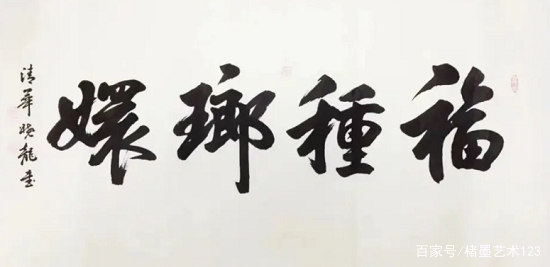 福種瑯嬛
清華曉龍書
百家号/楮墨艺术123